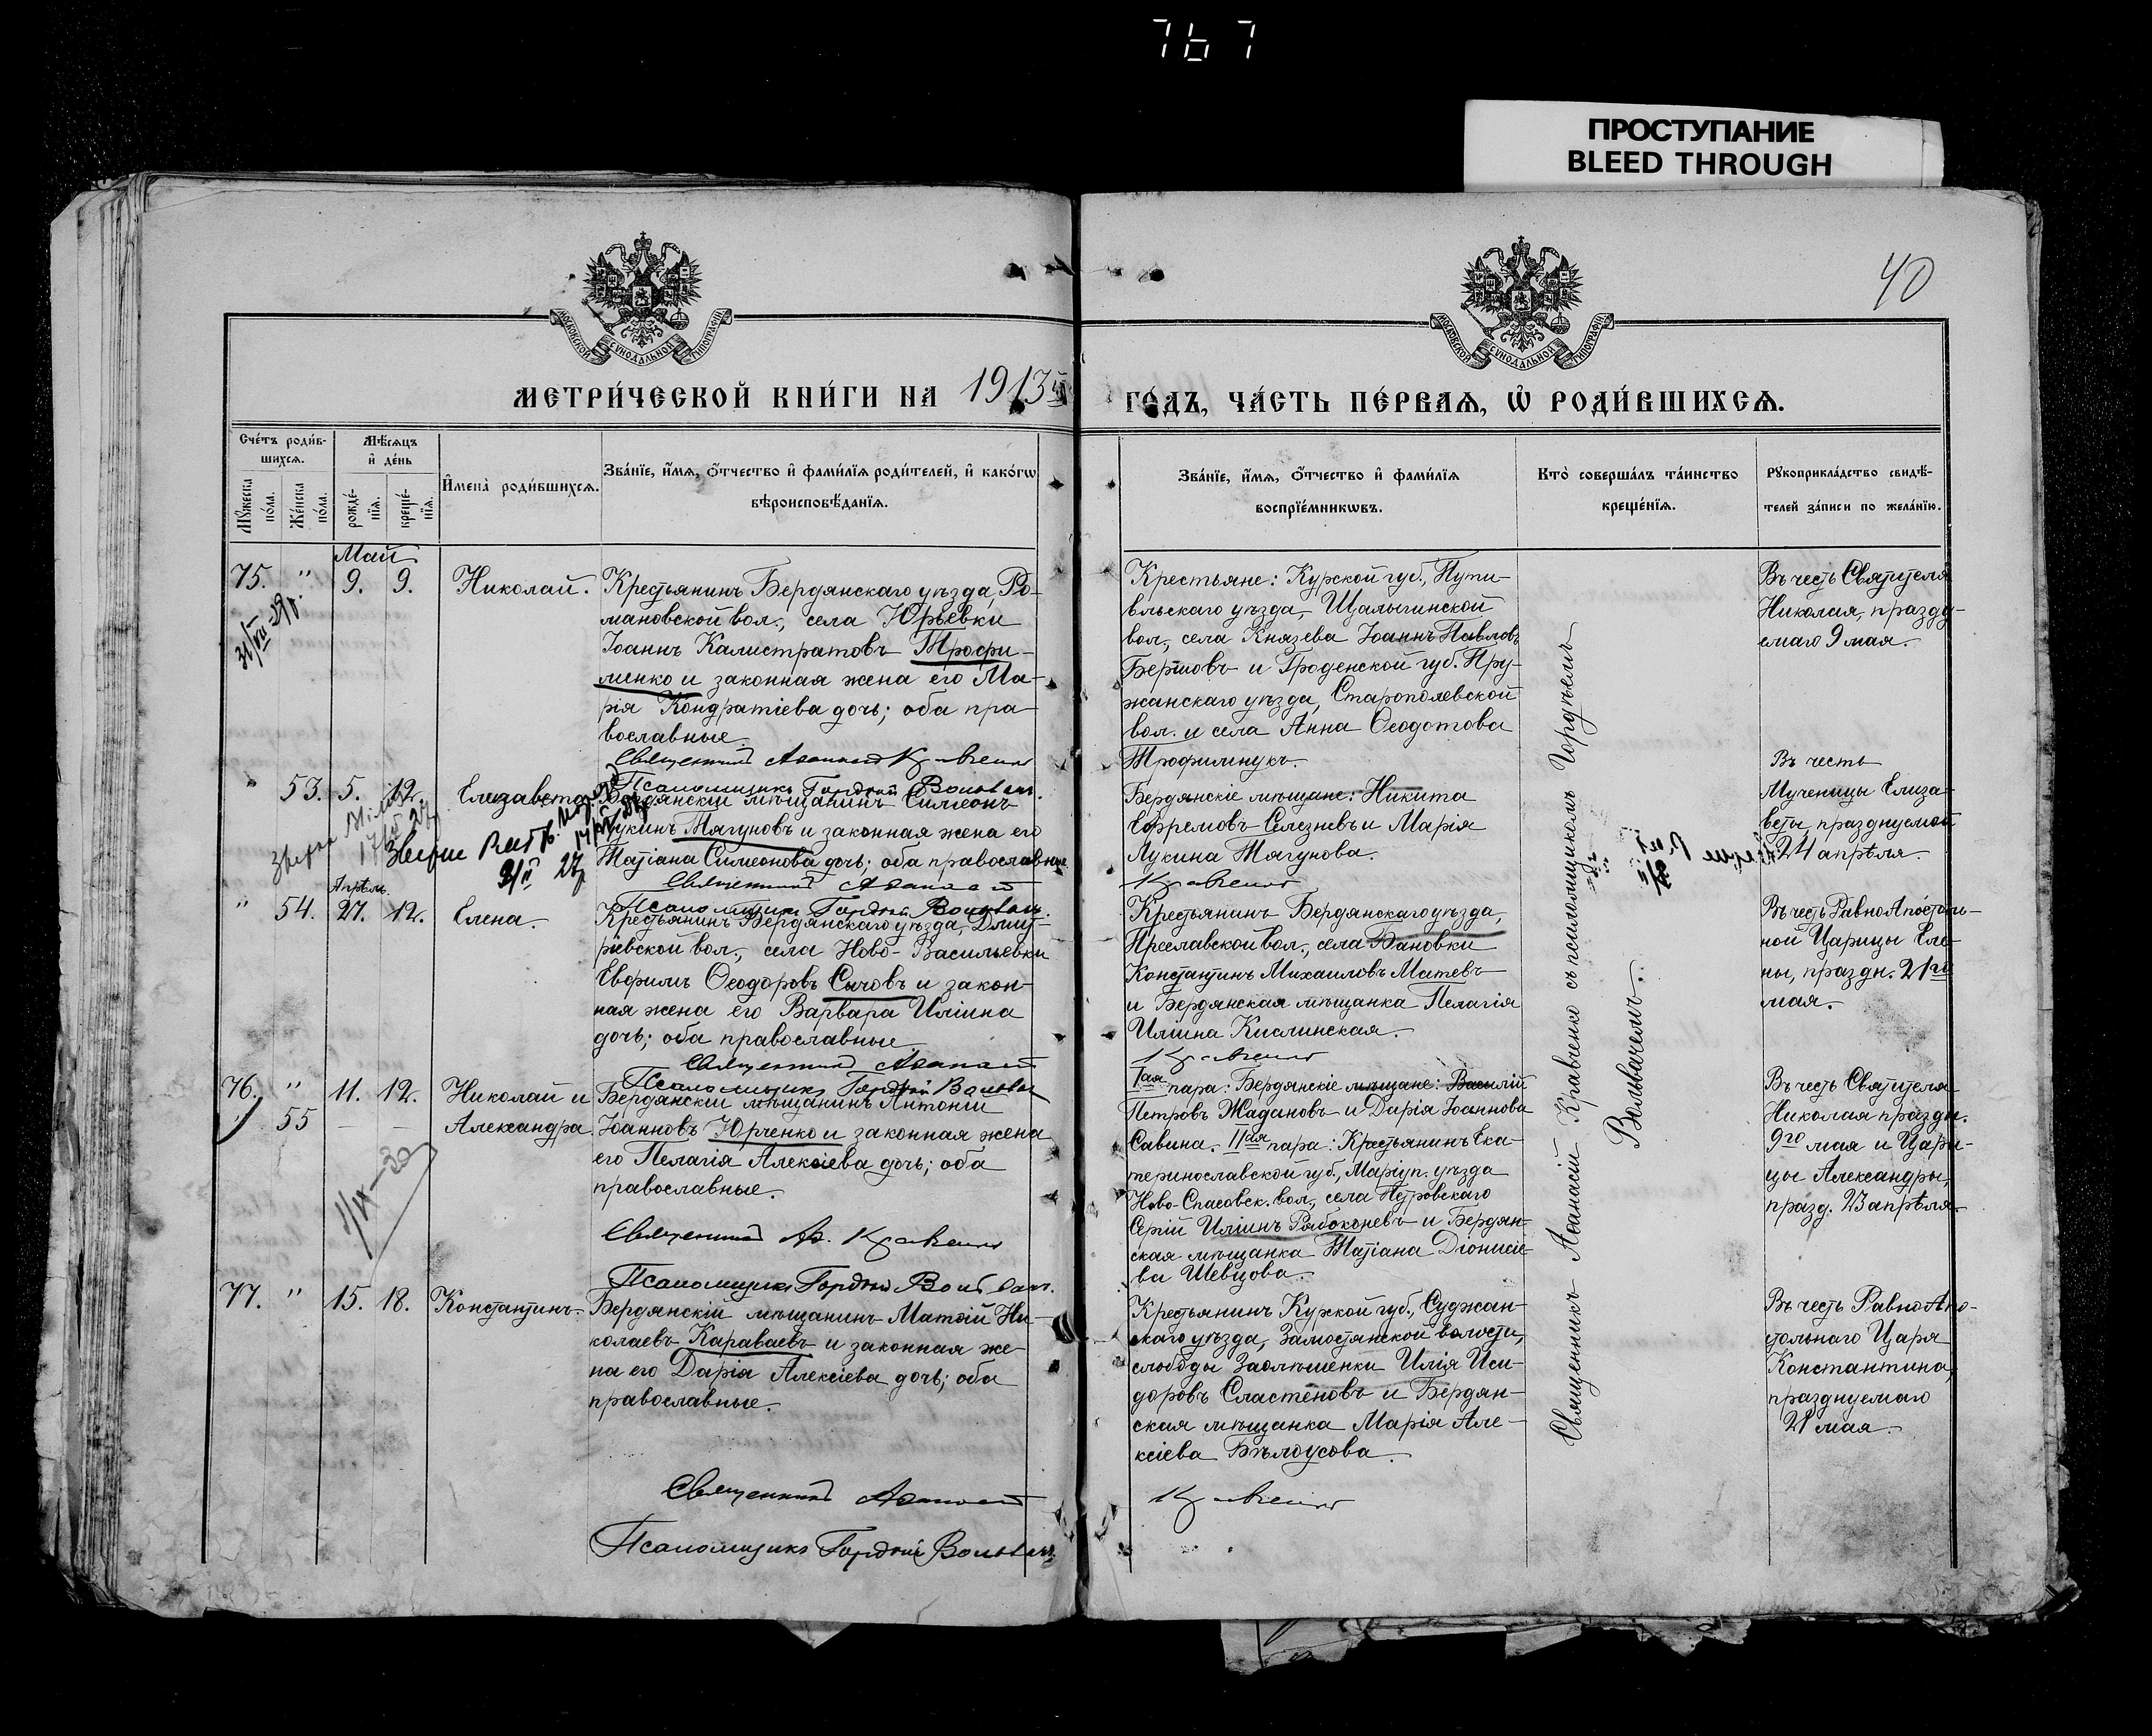 767
ПРОСТУПАНИЕ
BLEED THROUGH
40
МОСКОВСКОЙ СѴНОДАЛЬНОЙ ТИПОГРАФІИ
МОСКОВСКОЙ СѴНОДАЛЬНОЙ ТИПОГРАФІИ
МЕТРИ́ЧЕСКОЙ КНИ́ГИ НА 1913й
ГО́ДЪ, ЧА́СТЬ ПЕ́РВАѦ, Ѡ҆ РОДИ́ВШИХСѦ.
Сче́тъ роди́в-
шихсѧ.
Мѣ́сѧцъ
и҆ де́нь
Мꙋ́жеска по́ла.
Же́нска по́ла.
рожде́-
нїѧ.
креще́-
нїѧ.
И҆мена̀ роди́вшихсѧ.
Зва́нїе, и҆́мѧ, ѻ҆́тчество и҆ фами́лїѧ роди́телей, и҆ како́гѡ
вѣроисповѣ́данїѧ.
Зва́нїе, и҆́мѧ, ѻ҆́тчество и҆ фами́лїѧ
воспрїе́мникѡвъ.
Кто̀ соверша́лъ та́инство
креще́нїѧ.
Рꙋкоприкла́дство свидѣ́-
телей за́писи по жела́нїю.
Май
75. " 9. 9. Николай.
Крестьянинъ Бердянскаго уѣзда, Ро-
мановской вол., села Юрьевки
Іоаннъ Калистратовъ Трофи-
менко и законная жена его Ма-
рія Кондратіева дочь; оба пра-
вославные.
Священникъ Аѳанасій Кравченко
Псаломщикъ Гордѣй Волывачъ.
Крестьяне: Курской губ., Пути-
вльскаго уѣзда, Щалыгинской
вол., села Князева Іоаннъ Павловъ
Бершовъ и Гроденской губ. Пру-
жанскаго уѣзда, Старополевской
вол. и села Анна Ѳеодотова
Трофимчукъ.
Въ честь Святителя
Николая, праздну-
емаго 9 мая.
" 53. 5. 12. Елизавета
Бердянскій мѣщанинъ Симеонъ
Лукинъ Тягуновъ и законная жена его
Татіана Симеонова дочь; оба православные
Священникъ Аѳанасій
Псаломщикъ Гордѣй Волывачъ.
Бердянскіе мѣщане: Никита
Ефремовъ Селезневъ и Марія
Лукина Тягунова.
Кравченко
Въ честь
Мученицы Елиза-
веты, празднуемой
24 апрѣля.
Апрѣль.
" 54. 27. 12. Елена.
Крестьянинъ Бердянскаго уѣзда, Дмит-
ріевской вол., села Ново-Васильевки
Евфимъ Ѳеодоровъ Сычовъ и закон-
ная жена его Варвара Иліина
дочь; оба православные.
Священникъ Аѳанасій
Псаломщикъ Гордѣй Волывачъ
Крестьянинъ Бердянскаго уѣзда,
Преславской вол., села Бановки
Константинъ Михаиловъ Матевъ
и Бердянская мѣщанка Пелагія
Иліина Кислинская.
Кравченко
Въ честь РавноАпостоль-
ной Царицы Еле-
ны, праздн. 21го
мая.
76. " 11. 12. Николай и
" 55 — — Александра
Бердянскій мѣщанинъ Антоній
Іоанновъ Юрченко и законная жена
его Пелагія Алексіева дочь; оба
православные.
Священникъ Аѳ. Кравченко
Псаломщикъ Гордѣй Волывачъ.
Iая пара: Бердянскіе мѣщане: Василій
Петровъ Жадановъ и Дарія Іоаннова
Савина. IIая пара: Крестьянинъ Ека-
теринославской губ., Маріуп. уѣзда
Ново-Спасовск. вол., села Петровскаго
Сергій Иліинъ Рябоконевъ и Бердян-
ская мѣщанка Татіана Діонисіе-
ва Шевцова.
Въ честь Святителя
Николая праздн.
9го мая и Цари-
цы Александры,
празд. 23 апрѣля
77. " 15. 18. Константинъ.
Бердянскій мѣщанинъ Матѳій Ни-
колаевъ Караваевъ и законная же-
на его Дарія Алексіева дочь; оба
православные.
Священникъ Аѳанасій
Псаломщикъ Гордѣй Волывачъ
Крестьянинъ Курской губ., Суджан-
скаго уѣзда, Замостянской волости,
слободы Заолѣшенки Илія Иси-
доровъ Сластеновъ и Бердян-
ская мѣщанка Марія Але-
ксіева Бѣлоусова.
Кравченко
Въ честь РавноАпо-
стольнаго Царя
Константина,
празднуемаго
21 мая.
Священникъ Аѳанасій Кравченко съ псаломщикомъ Гордѣемъ
Волывачемъ.